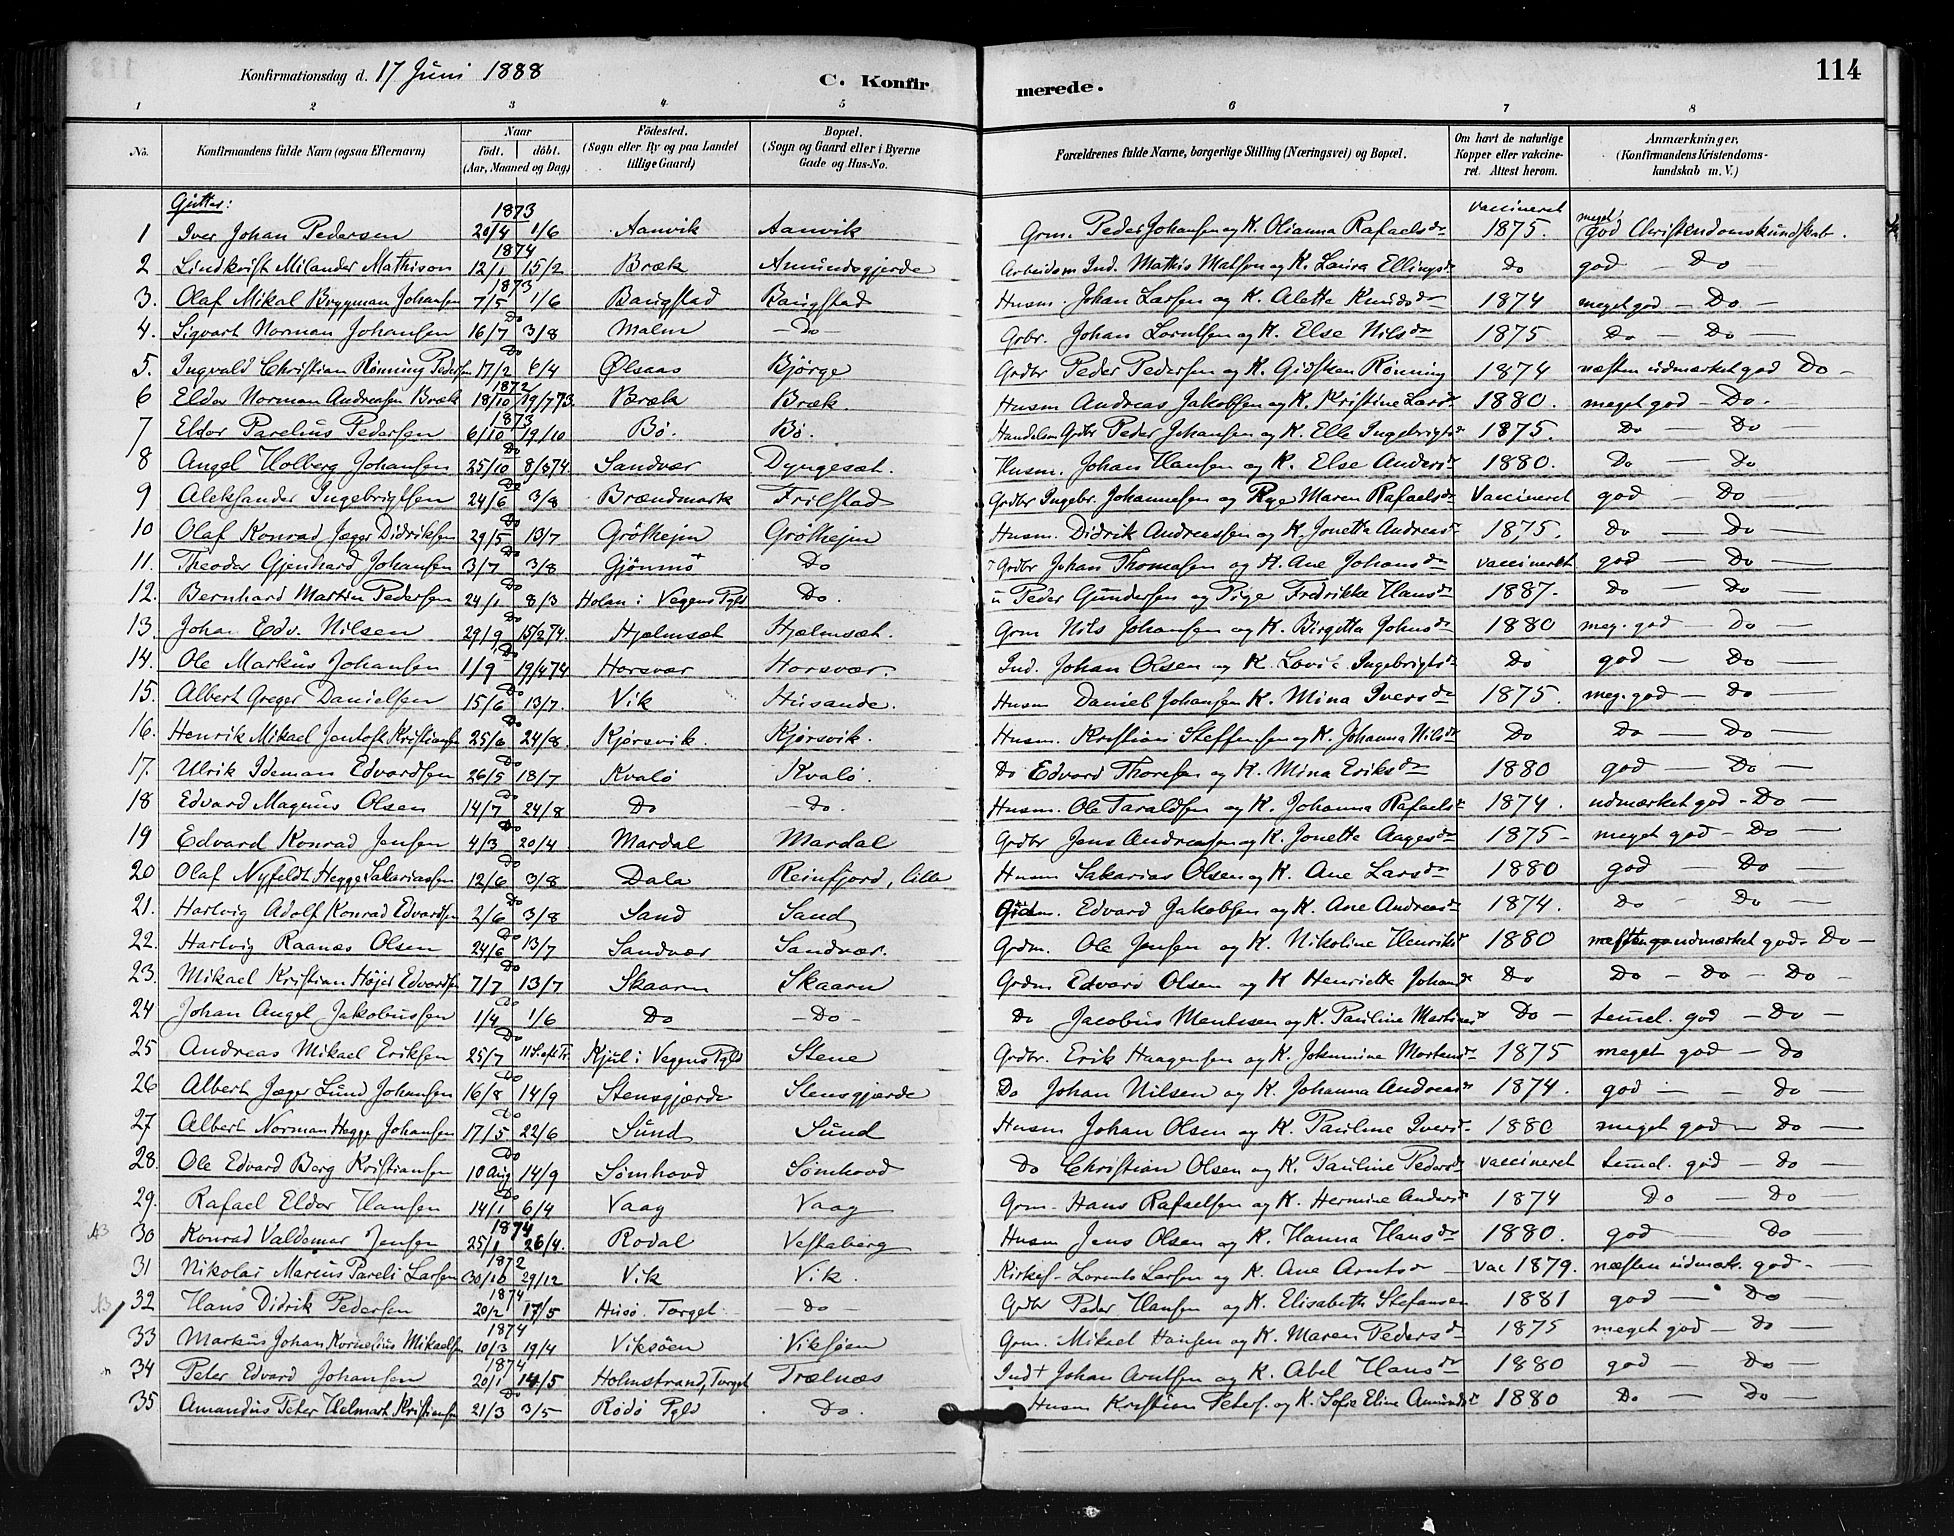 Konfirmationsdag d. 17 Juni 1888
C. Konfirmerede.
114
1 2 3 4 5 6 7 8
No. Konfirmandens fulde Navn (ogsaa Efternavn) Naar født. døbt. (Aar, Maaned og Dag) Fødested. (Sogn eller By og paa Landet tillige Gaard) Bopæl. (Sogn og Gaard eller i Byerne Gade og Hus-No. Forældrenes fulde Navne, borgerlige Stilling (Næringsvei) og Bopæl. Om havt de naturlige Kopper eller vaccineret. Attest herom. Anmærkninger. (Konfirmandens Kristendomskundskab m. V.)
Gutter:
1 Iver Johan Pedersen 1873 20/4 1/6 Aanvik Aanvik Grm. Peder Johansen og K. Olianna Rafaelsdr vaccineret 1875. meget god Christendomskundskab.
2 Lindkvist Milander Mathison 1874 12/1 15/2 Bræk Amundsgjerde Arbeidsm Ind. Mathis Matsen og K. Laura Ellingsdr Do god – Do
3. Olaf Mikal Bryggman Johansen 1873 7/5 1/6 Baugstad Baugstad Husm. Johan Larsen og K. Aletta Knudsdr 1874 meget god – Do –
4. Sigvart Norman Johansen Do 16/7 3/8 Malm – Do – Grbr. Johan Lorntsen og K. Else Nilsdr 1875 Do – Do
5. Ingvald Christian Rønning Pedersen Do 17/2 6/4 Ølsaas Bjørge Grdbr Peder Pedersen og K. Gidskan Rønning 1874 næsten udmærket god Do –
6 Eldor Norman Andreasen Bræk 1872 18/10 19/7 73. Bræk Bræk. Husm Andreas Jakobsen og K. Kristine Larsdr 1880. meget god – Do.
7 Eldor Parelius Pedersen 1873 6/10 19/10 Bø. Bø. Handelsm Grdbr Peder Johansen og K. Elle Ingebrigtsdr 1875. Do – Do
8 Angel Holberg Johansen Do 25/10 8/3 74. Sandvær Dyngesæt. Husm. Johan Hansen og K. Else Andersdr 1880. Do – Do
9 Aleksander Ingebrigtsen Do 24/6 3/8 Brændmark Frilstad Grdbr Ingebr. Johannesen og Pige Maren Rafaelsdr Vaccineret god – Do –
10 Olaf Konrad Jæger Didriksen Do 29/5 13/7 Grøthejm Grøthejm Husm. Didrik Andreassen og K. Jonetta Andreasdr 1875. Do – Do –
11. Theodor Gjenhard Johansen Do 3/7 3/8 Gjønmo Do Grdbr Johan Thomasen og K. Ane Johansdr vaccineret god – Do –
12. Bernhard Martin Pedersen Do 24/1 8/3 Holan i Vegens Pgld Do. u Peder Gundersen og Pige Fredrikke Hansdr 1887. Do – Do –
13. Johan Edv. Nilsen Do 29/9 15/2 74. Hjelmsæt Hjelmsæt. Grm Nils Johansen og K. Birgetta Johnsdr 1880 meg. god – Do –
14. Ole Markus Johansen Do 1/9 19/4 74 Horsvær Horsvær. Ind. Johan Olsen og K. Lovic Ingebrigtsdr Do god – Do –
15. Albert Greger Danielsen Do 15/6 13/7. Vik Husande. Husm Daniel Johansen K. Mina Iversdr 1875. meg. god – Do –
16. Henrik Mikael Jentoft Kristiansen Do 25/6 24/8. Kjørsvik. Kjørsvik. Husm. Kristian Steffensen og K. Johanna Nilsdr Do Do – Do –
17. Ulrik Ideman Edvardsen Do 26/5 18/7 Kvalø Kvalø. Do Edvard Thoresen og K. Mina Eriksdr 1880 god – Do –
18 Edvard Magnus Olsen Do 14/7 24/8 Do – Do. Husm. Ole Taraldsen og K. Johanna Rafaelsdr 1874. udmærket god – Do –
19 Edvard Konrad Jensen Do 4/3 20/4 Mardal Mardal Grdbr Jens Andreasen og K. Jonette Aagesdr 1875 – meget god – Do –
20 Olaf Nyfeldt Hegge Sakariassen Do 12/6 3/8 Dala Reinfjord, lille Husm Sakarias Olsen og K. Ane Larsdr 1880 god – Do –
21. Hartvig Adolf Konrad Edvardsen Do 2/6 3/8 Sand Sand Edvard Jakobsen og K. Ane Andreasdr 1874. Do – Do –
22. Hartvig Raanæs Olsen Do 24/6 13/7 Sandvær Sandvær. Grdm. Ole Jensen og K. Nikoline Henriksdr 1880 næsten udmærket god. Do –
23. Mikael Kristian Højer Edvardsen Do 7/7 13/7 Skaarn Skaarn Grdm Edvard Olsen og K Henriette Johansdr Do Do – Do – Do –
24 Johan Angel Jakobussen Do 1/4 1/6 Do – Do – Do Jacobus Mentzen og K. Pauline Martinsdr Do – temel. god – Do –
25 Andreas Mikael Eriksen Do 25/7 11 S. eft Tr. Kjul i Vegens Pgld Stene Grdbr. Erik Haagensen og K. Johannine Mortensdr 1875 meget god – Do
26 Albert Jæger Lund Johansen Do 16/8 14/9 Stensgjærde Stensgjerde Do Johan Nilsen og K. Johanna Andreasdr 1874. god – Do –
27 Albert Norman Hegge Johansen Do 17/5 22/6 Sund Sund Husm Johan Olsen og K. Pauline Iversdr 1880 meget god – Do –
28. Ole Edvard Berg Kristiansen Do 10 Aug 14/9 Sømhovd Sømhovd Do Christian Olsen og K. Pauline Pedersdr vaccineret temel. god – Do –
29. Rafael Eldor Hansen Do 14/1 6/4 Vaag Vaag Grm. Hans Rafaelsen og K. Hermine Andersdr 1874 Do – Do
30 Konrad Valdemar Jensen 1874 25/1 26/4. Rodal Vestaberg Husm Jens Olsen og K. Hanna Hansdr 1880. god Do –
31 Nikolai Marius Pareli Larsen 1872 30/10 29/12 Vik Vik. Kirkes. Lorents Larsen og K. Ane Arntsdr – vac 1879. næsten udmærk. god –
32 Hans Didrik Pedersen 1874 20/2 17/5 Husø. Torget – Do Grdbr Peder Hansen og K. Elisabeth Stefansen 1881 god – Do –
33 Markus Johan Kornelius Mikaelsen 1874 10/3 19/4 Viksøen Viksøen Grm. Mikael Hansen og K. Maren Pedersdr 1875 meget god – Do –
34 Peter Edvard Johansen 1874 20/1 14/5 Holmstrand, Torget Trælnæs Ind Johan Arntsen og K. Abel Hansdr 1880 god – Do –
35 Amandus Peter Helmart Kristiansen Do 21/3 3/5 Rødø Pgld Do. Husm Kristian Peters. og K. Sofie Eline Amundsdr 1880 Do – Do –